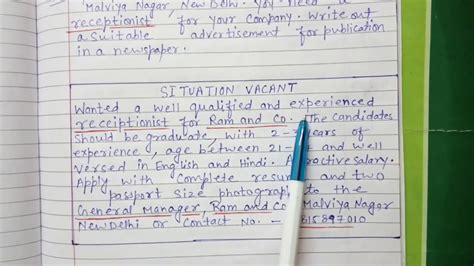 Malviya Nagar, New Delhi. You need a
receptionist for your company. Write out
a suitable advertisement for publication
in a newspaper.
SITUATION VACANT
Wanted a well qualified and experienced
receiptionist for Ram and Co. The candidates
should be graduate with 2- years of
experience, age between 21- and well
versed in English and Hindi. Attractive salary.
Apply with complete resume and two
passport size photograph to the
General Manager, Ram and Co Malviya Nagar
New Delhi or Contact No. - 815897010